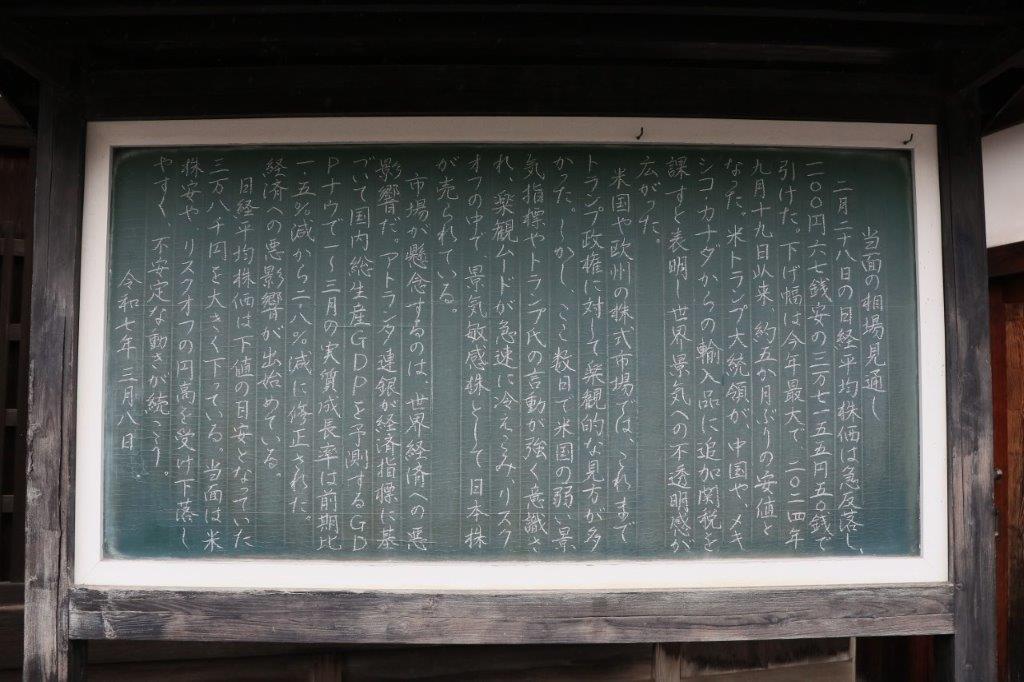 当面の相場見通し
二月二十八日の日経平均株価は急反落し、
一一〇〇円六七銭安の三万七一五五円五〇銭で
引けた。下げ幅は今年最大で、二〇二四年
九月十九日以来、約五か月ぶりの安値と
なった。米トランプ大統領が、中国や、メキ
シコ・カナダからの輸入品に追加関税を
課すと表明し世界景気への不透明感が
広がった。
米国や欧州の株式市場では、これまで
トランプ政権に対して楽観的な見方が多
かった。しかし、ここ数日で米国の弱い景
気指標やトランプ氏の言動が強く意識さ
れ、楽観ムードが急速に冷えこみ、リスク
オフの中で、景気敏感株として日本株
が売られている。
市場が懸念するのは、世界経済への悪
影響だ。アトランタ連銀が経済指標に基
づいて国内総生産GDPを予測するGD
Pナウで一〜三月の実質成長率は前期比
一・五%減から二・八%減に修正された。
経済への悪影響が出始めている。
日経平均株価は下値の目安となっていた
三万八千円を大きく下っている。当面は米
株安や、リスクオフの円高を受け下落し
やすく、不安定な動きが続こう。
令和七年 三月八日.